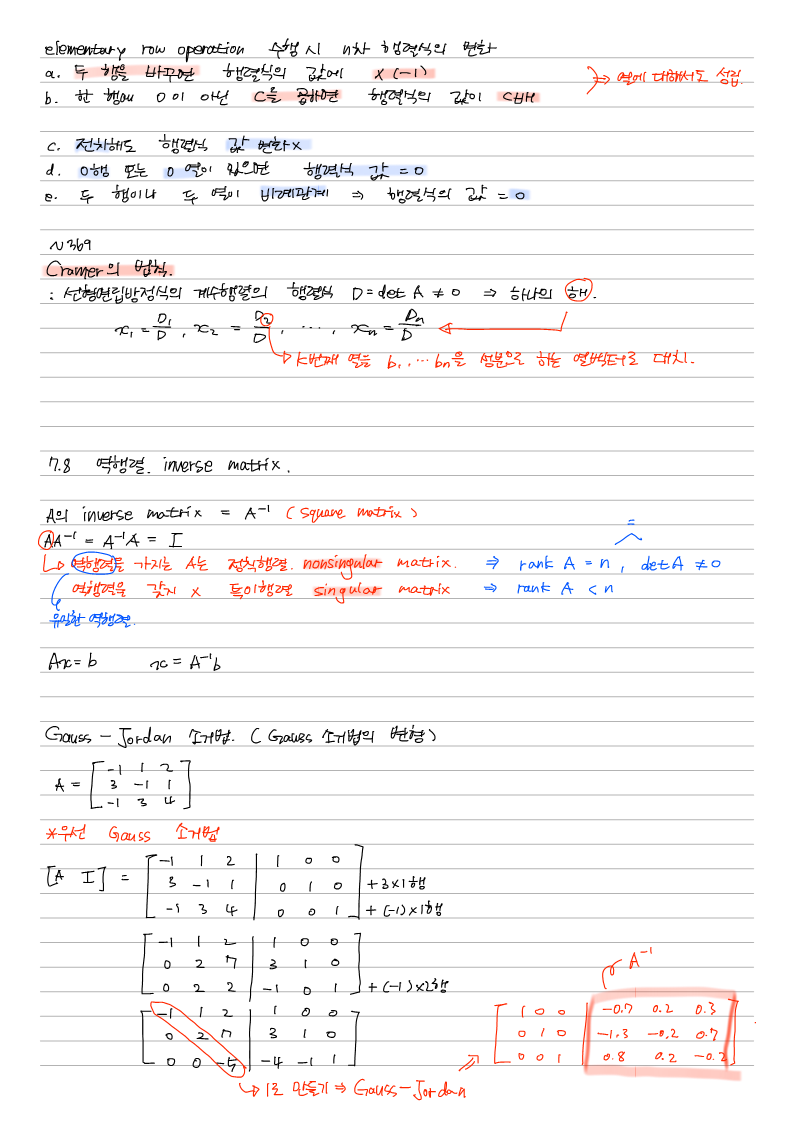 elementary row operation 수행 시 n차 행렬식의 변화
a. 두 행을 바꾸면 행렬식의 값에 x (-1)
b. 한 행에 0이 아닌 C를 곱하면 행렬식의 값이 C배
→ 열에 대해서도 성립
c. 전치해도 행렬식 값 변화x
d. 0행 또는 0열이 있으면 행렬식 값 = 0
e. 두 행이나 두 열이 비례관계 ⇒ 행렬식의 값 = 0
~369
Cramer의 법칙.
: 선형연립방정식의 계수행렬의 행렬식 D = det A ≠ 0 ⇒ 하나의 해.
x₁ = D₁/D, x₂ = D₂/D, ⋯, xₙ = Dₙ/D
→ k번째 열을 b₁, ⋯ bₙ을 성분으로 하는 열벡터로 대치.
7.8 역행렬. inverse matrix.
A의 inverse matrix = A⁻¹ (square matrix)
AA⁻¹ = A⁻¹A = I
=
→ 역행렬을 가지는 A는 정칙행렬. nonsingular matrix. ⇒ rank A = n, det A ≠ 0
역행렬을 갖지 x 특이행렬 singular matrix ⇒ rank A < n
유일한 역행렬.
Ax = b x = A⁻¹b
Gauss - Jordan 소거법. (Gauss 소거법의 변형)
A = [-1 1 2
3 -1 1
-1 3 4]
*우선 Gauss 소거법
[A I] = [-1 1 2 | 1 0 0
3 -1 1 | 0 1 0 + 3x1행
-1 3 4 | 0 0 1] + (-1)x1행
[-1 1 2 | 1 0 0
0 2 7 | 3 1 0
0 2 2 | -1 0 1] + (-1)x2행
[-1 1 2 | 1 0 0
0 2 7 | 3 1 0
0 0 -5 | -4 -1 1]
→ 1로 만들기 ⇒ Gauss-Jordan
⇒ A⁻¹
[1 0 0 | -0.7 0.2 0.3
0 1 0 | -1.3 -0.2 0.7
0 0 1 | 0.8 0.2 -0.2]